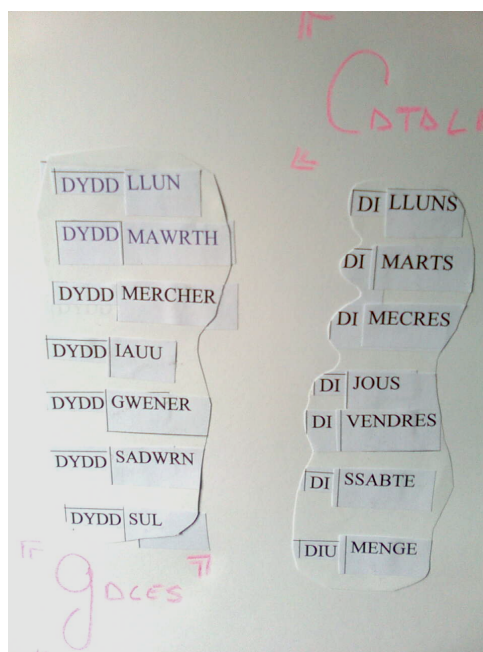 CATAL
DYDD LLUN
DYDD MAWRTH
DYDD MERCHER
DYDD IAUU
DYDD GWENER
DYDD SADWRN
DYDD SUL
DI LLUNS
DI MARTS
DI MECRES
DI JOUS
DI VENDRES
DI SSABTE
DIU MENGE
GALES